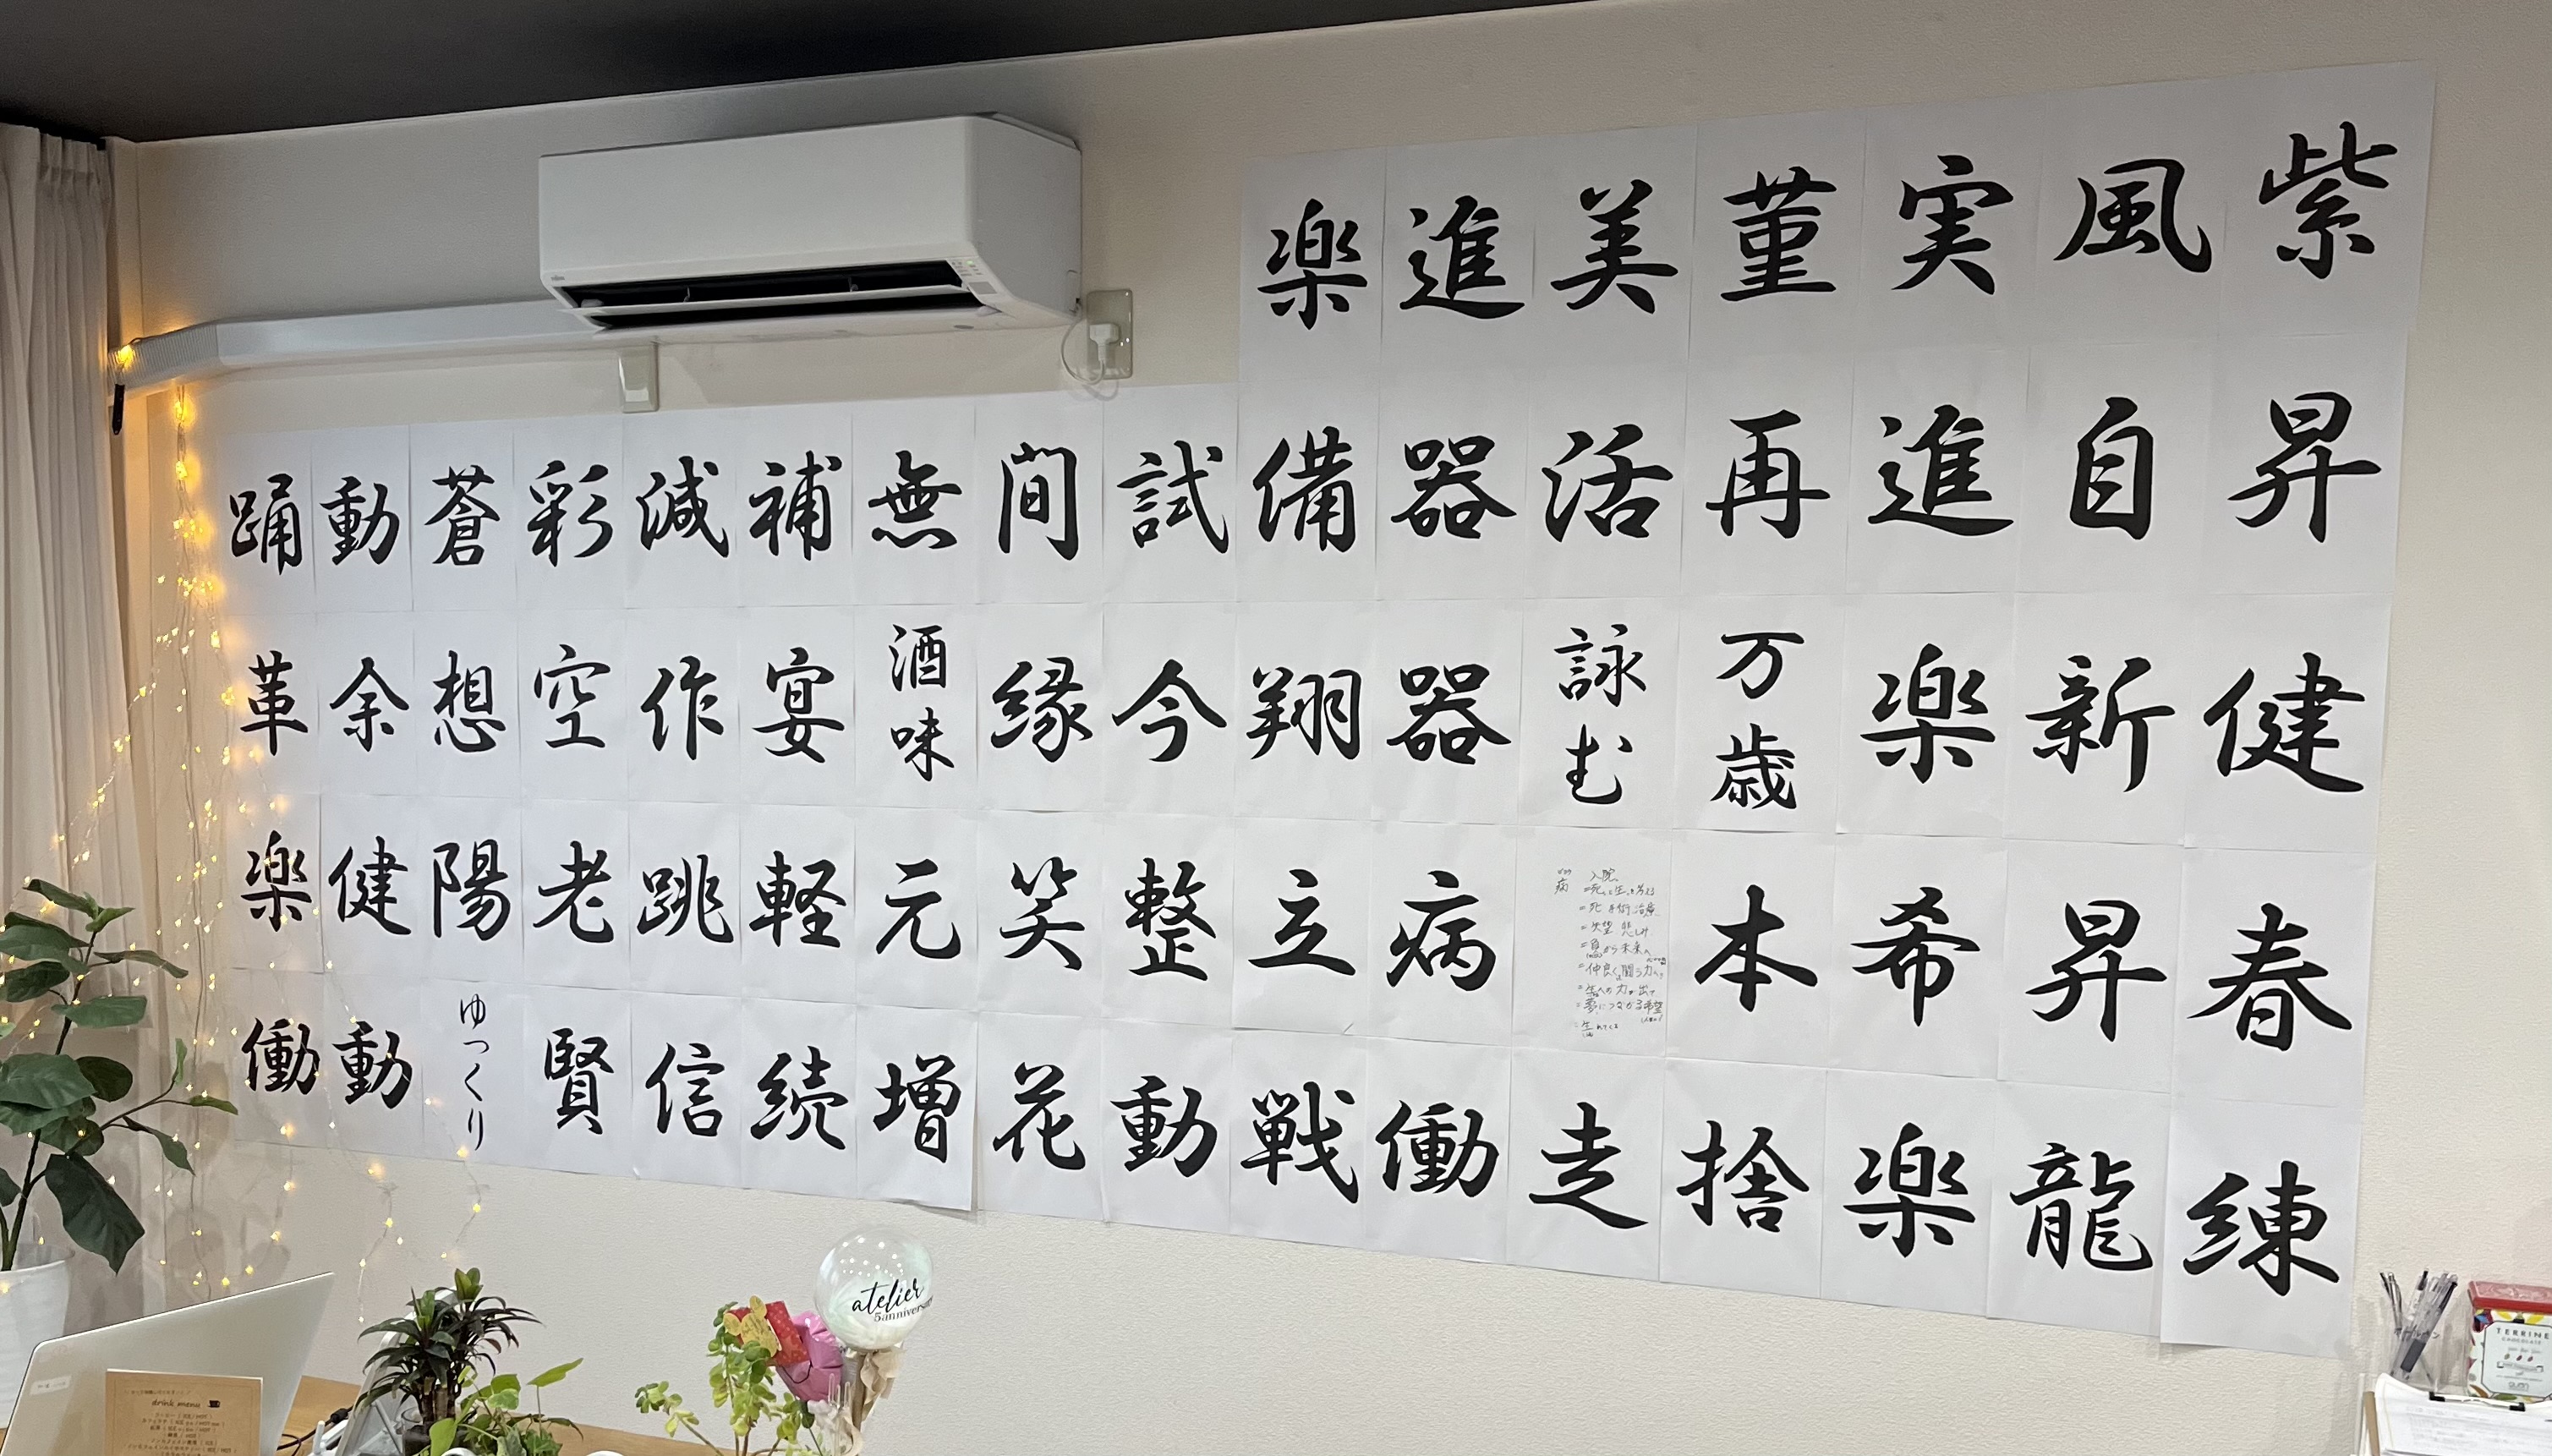 楽 進 美 菫 実 風 紫
踊 動 蒼 彩 減 補 無 間 試 備 器 活 再 進 自 昇
革 余 想 空 作 宴 酒味 縁 今 翔 器 詠む 万歳 楽 新 健
楽 健 陽 老 跳 軽 元 笑 整 立 病 本 希 昇 春
働 動 ゆっくり 賢 信 続 増 花 動 戦 働 走 捨 楽 龍 練
病
入院
atelier
5anniversary
drink menu
TERRINE